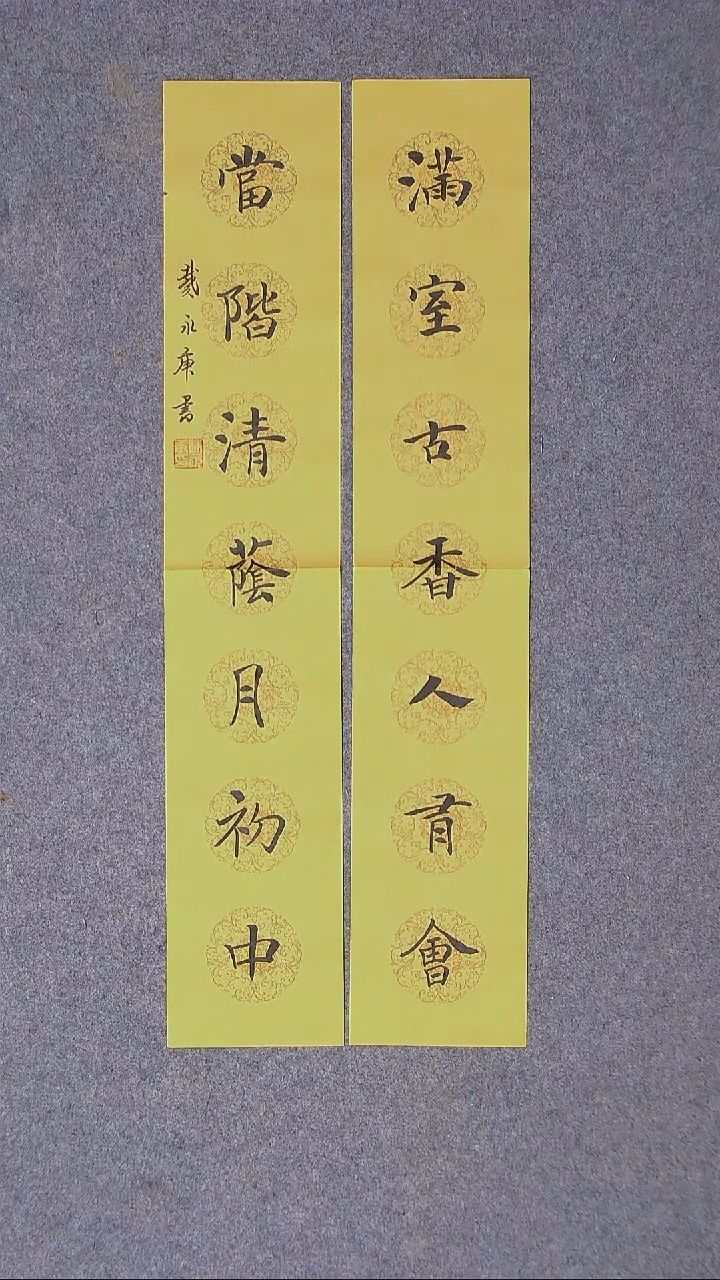 滿室古香人有會
當階清蔭月初中
戴永庚書